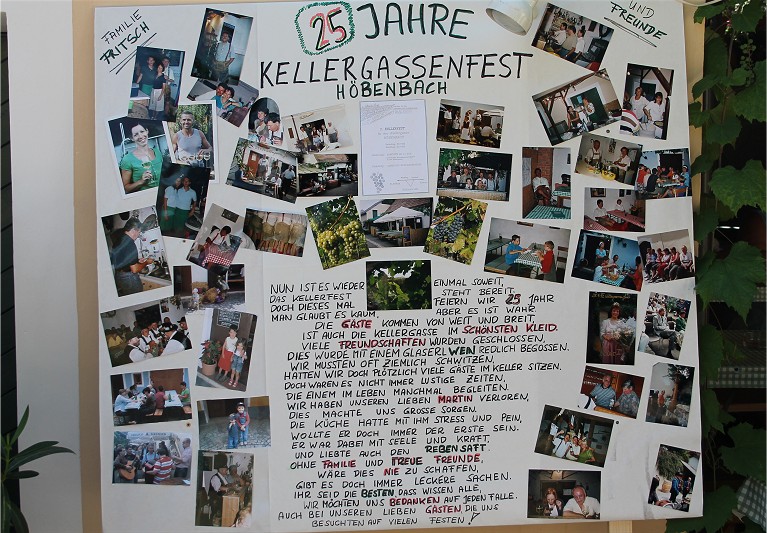 FAMILIE
FRITSCH
25 JAHRE
UND
FREUNDE
KELLERGASSENFEST
HÖBENBACH
NUN IST ES WIEDER EINMAL SOWEIT,
DAS KELLERFEST STEHT BEREIT.
DOCH DIESES MAL FEIERN WIR 25 JAHR
MAN GLAUBT ES KAUM, ABER ES IST WAHR.
DIE GÄSTE KOMMEN VON WEIT UND BREIT,
IST AUCH DIE KELLERGASSE IM SCHÖNSTEN KLEID.
VIELE FREUNDSCHAFTEN WURDEN GESCHLOSSEN,
DIES WURDE MIT EINEM GLASERL WEIN REDLICH BEGOSSEN.
WIR MUSSTEN OFT ZIEMLICH SCHWITZEN,
HATTEN WIR DOCH PLÖTZLICH VIELE GÄSTE IM KELLER SITZEN.
DOCH WAREN ES NICHT IMMER LUSTIGE ZEITEN,
DIE EINEM IM LEBEN MANCHMAL BEGLEITEN.
WIR HABEN UNSEREN LIEBEN MARTIN VERLOREN,
DIES MACHTE UNS GROSSE SORGEN.
DIE KÜCHE HATTE MIT IHM STRESS UND PEIN,
WOLLTE ER DOCH IMMER DER ERSTE SEIN.
ER WAR DABEI MIT SEELE UND KRAFT,
UND LIEBTE AUCH DEN REBENSAFT.
OHNE FAMILIE UND TREUE FREUNDE,
WÄRE DIES NIE ZU SCHAFFEN,
GIBT ES DOCH IMMER LECKERE SACHEN.
IHR SEID DIE BESTEN, DASS WISSEN ALLE,
WIR MÖCHTEN UNS BEDANKEN AUF JEDEN FALLE.
AUCH BEI UNSEREN LIEBEN GÄSTEN, DIE UNS
BESUCHTEN AUF VIELEN FESTEN!